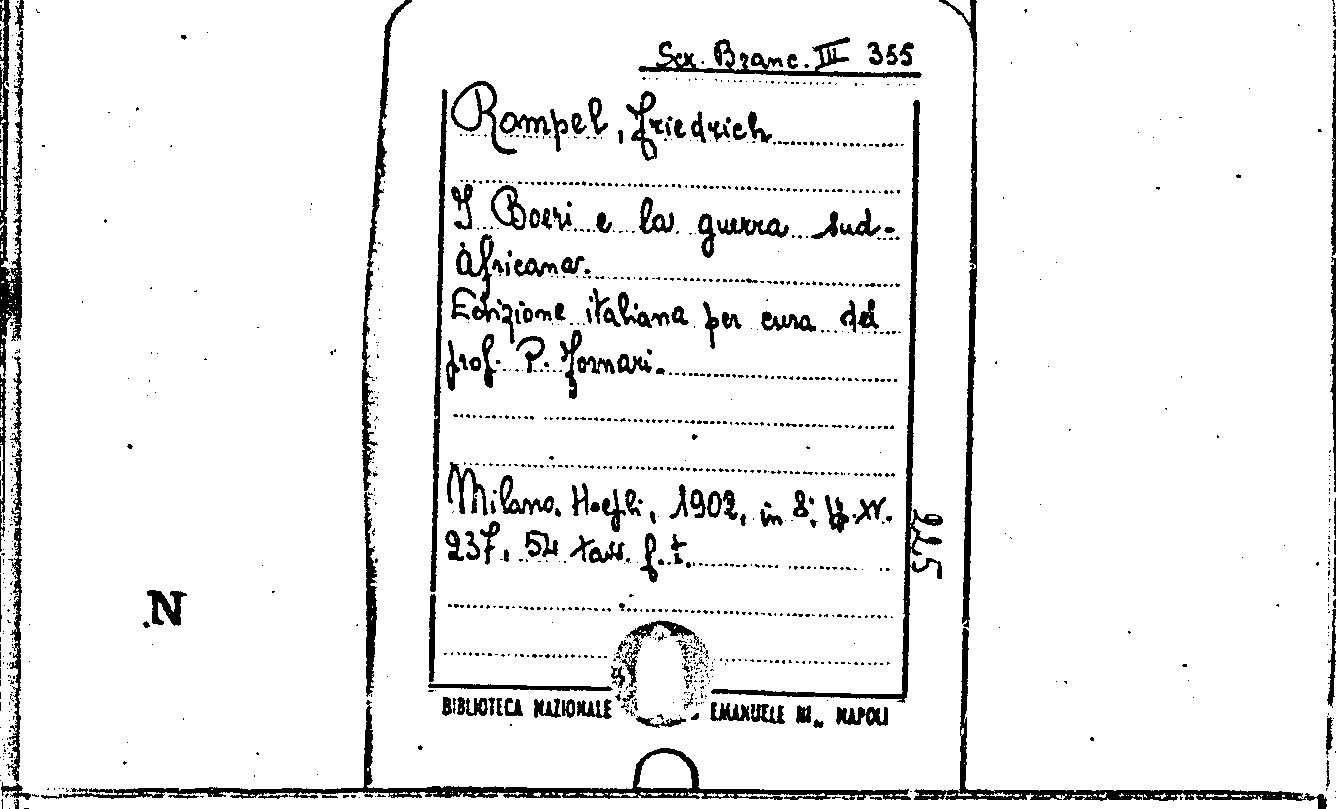 Sez. Branc. III 355
Rompel, Friedrich
I Boeri e la guerra sud-
Africana.
Edizione italiana per cura del
prof. P. Fornari.
Milano, Hoepli, 1902, in 8°, pp. XV.
237, 54 tav. f. t.
225
N
BIBLIOTECA NAZIONALE EMANUELE III NAPOLI